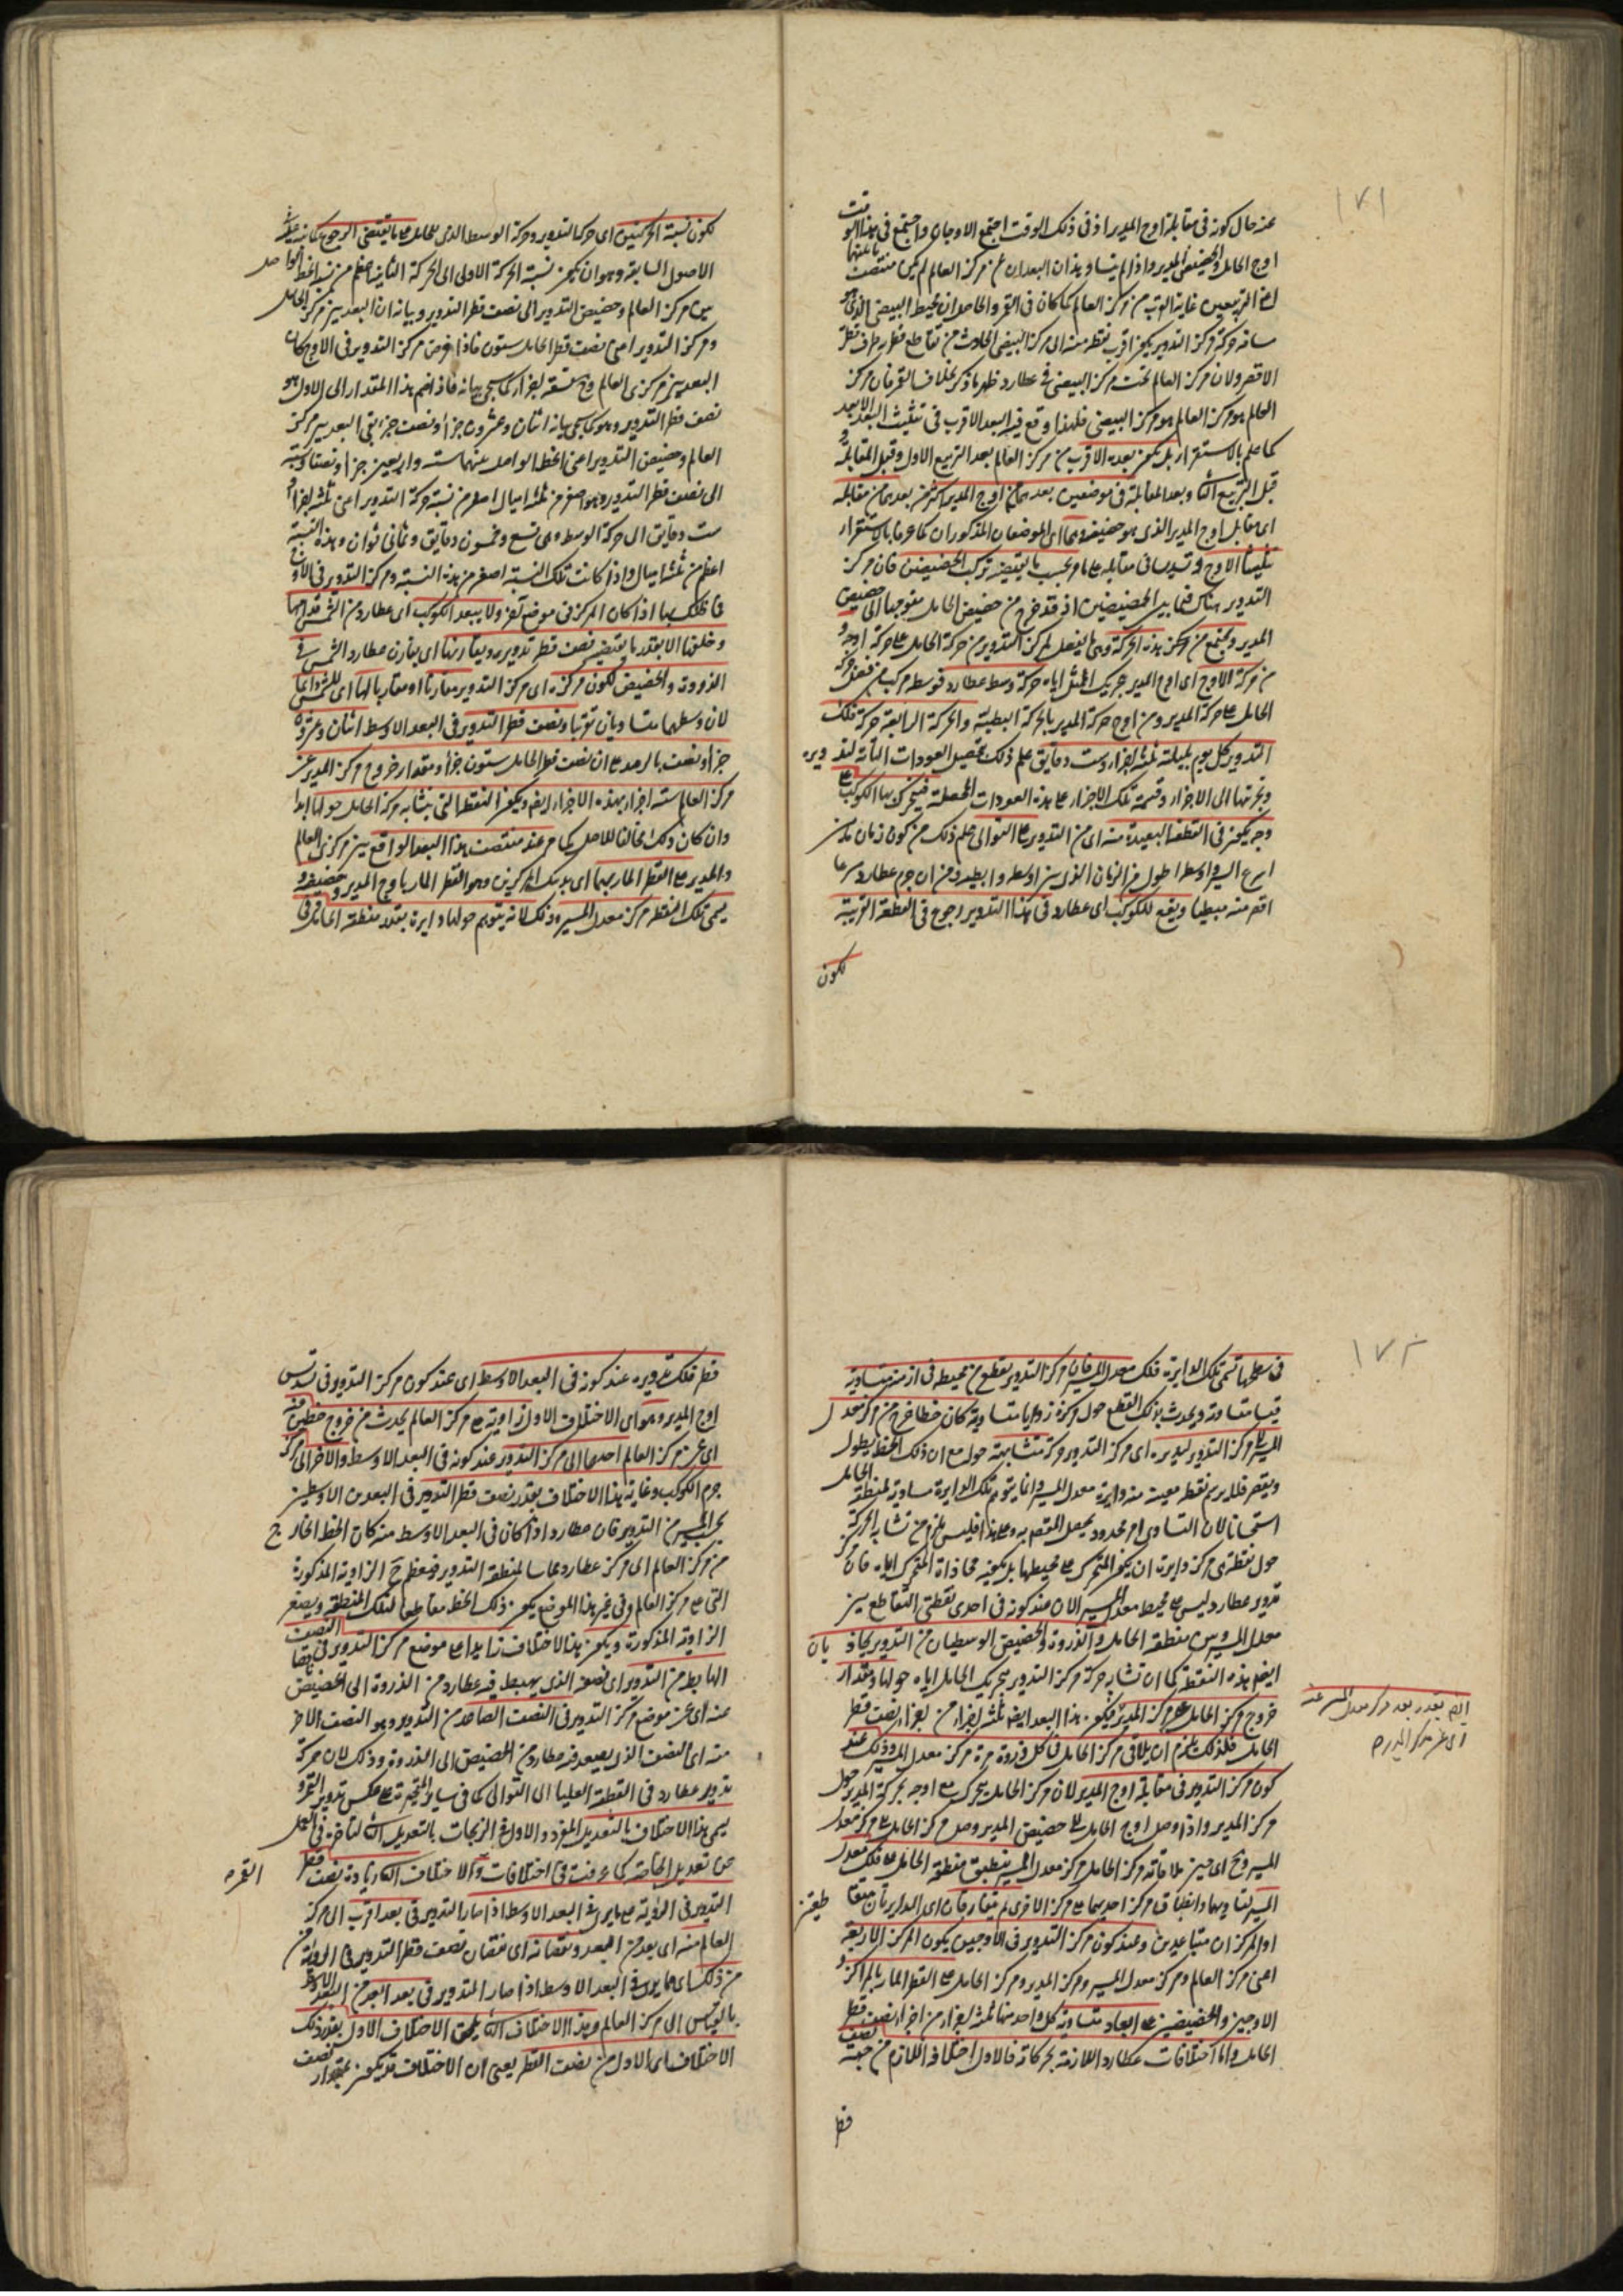 ١٧١
عند حال كونه فى مقابلة اوج المدير اذ فى ذلك الوقت اجتمع الاوجان واجتمع فى هذا الوقت
اوج الحامل والحضيض المدير واذا لم يتساو هذان البعدان عن مركز العالم لم يكن منتصف
غاية القرب من مركز العالم كما كان فى القمر والحاصل ان محيط البيضى الذى هو
مركز التدوير يكون اقرب نقطة منه الى مركز البيضى الحادث من تقاطع قطريه طرف قطره
الاقصر ولان مركز العالم تحت مركز البيضى فى عطارد ظهر ما ذكر بخلاف القمر فان مركز
العالم هو مركز البيضى فلهذا وقع فيه البعد الاقرب فى تثليث البعد الابعد
كما علم بالاستقرار بل يكون بعده الاقرب من مركز العالم بعد التربيع الاول وقبل المقابلة و
قبل التربيع الثانى وبعد المقابلة فى موضعين بعدهما من اوج المدير اكثر من بعدهما من مقابله
اى مقابل اوج المدير الذى هو حضيضه وهما اى الموضعان المذكوران كما عرفا بالاستقرار
تثليثا الاوج و تسديسا فى مقابله على ما مر بحسب ما يقتضيه تركب الحضيضين فان مركز
التدوير هناك فيما بين الحضيضين اذ قد خرج من حضيض الحامل متوجها الى حضيض
المدير ويجتمع من مركز هذه الحركة وهى ما يفضل لمركز التدوير من حركة الحامل على حركة اوجه و
من حركة الاوج اى اوج المدير بتحريك الممثل اياه حركة وسط عطارد فوسطه مركب من فضل حركة
الحامل على حركة المدير ومن اوج حركة المدير بالحركة البطيئة والحركة الرابعة حركة فلك
التدوير كل يوم بليلته ثلثة اجزاء وست دقايق علم ذلك بتحصيل العودات التامة لتدويره
وتجزئتها الى الاجزاء وقسمة تلك الاجزاء على هذه العودات المحصلة فيتحرك بها الكوكب
وح يكون فى القطعة البعيدة منه اى من التدوير على التوالى علم ذلك من كون زمان ما بين
اسرع السير واوسطه اطول من الزمان الذى بين اوسطه وابطئه ومن ان جرم عطارد سريعا
اقصر منه مبطيا ويقع للكوكب اى عطارد فى هذا التدوير رجوع فى القطعة القريبة
لكون
لكون نسبة الحركتين اى حركة التدوير وحركة الوسط الذى للحامل على ما يقتضى الرجوع كما تبين
الاصول السابقة وهو ان يكون نسبة الحركة الاولى الى الحركة الثانية اعظم من نسبة الخط الواصل
بين مركز العالم وحضيض التدوير الى نصف قطر التدوير وبيانه ان البعد بين مركز الحامل
ومركز التدوير اعنى نصف قطر الحامل ستون فاذا فرض مركز التدوير فى الاوج كان
البعد بين مركزى العالم وح تسعة اجزاء كما سيجئ بيانه فاذا ضم هذا المقدار الى الاول و
نصف قطر التدوير وهو كما سيجئ بيانه اثنان وعشرون جزأ ونصف جزء بقى البعد بين مركز
العالم وحضيض التدوير اعنى الخط الواصل بينهما ستة واربعين جزأ ونصفا ونسبته
الى نصف قطر التدوير وهو اصغر من ثلثة امثال اصغر من نسبة حركة التدوير اعنى ثلثة اجزاء و
ست دقايق الى حركة الوسط وهى تسع وخمسون دقايق وثمانى ثوان وهذه النسبة
اعظم من ثلثة امثال واذا كانت تلك النسبة اصغر من هذه النسبة ومركز التدوير فى الاوج
فما ظنك بها اذا كان المركز فى موضع آخر ولا يبعد الكوكب اى عطارد من الشمس قدامها
وخلفها الا بقدر ما يقتضيه نصف قطر تدويره ويقارنها اى يقارن عطارد الشمس فى
الذروة والحضيض لكون مركزه اى مركز التدوير مقارنا او مقاربا لها اى للشمس دايما
لان وسطيهما متساويان تقريبا ونصف قطر التدوير فى البعد الاوسط اثنان وعشرون
جزأ ونصف بالرصد على ان نصف قطر الحامل ستون جزأ ومقدار خروج مركز المدير عن
مركز العالم ستة اجزاء بهذه الاجزاء ايضا ويكون النقطة التى يتشابه حركة الحامل حولها ابدا
وان كان ذلك مخالفا للاصل كما مر عند منتصف هذا البعد الواقع بين مركزى العالم
والمدير على القطر المار بهما اى بذينك المركزين وهو القطر المار باوج المدير وحضيضه و
يسمى تلك النقطة مركز معدل المسير وذلك لانه يتوهم حولها دايرة بقدر منطقة الحامل فى
١٧٢
فى سطحها تسمى تلك الدايرة فلك معدل المسير فان مركز التدوير يقطع من محيطه فى ازمنة متساوية
قسيا متساوية ويحدث بذلك القطع حول مركزه زوايا متساوية كان خطا خرج من مركز معدل
المسير الى مركز التدوير يديره اى مركز التدوير حركة متشابهة حوله مع ان ذلك الخط يطول
ويقصر فلا يرسم نقطة معينة منه دايرة معدل المسير وانما يتوهم تلك الدايرة مساوية لمنطقة الحامل
استحسانا لان التساوى امر محدود يحصل القصر به وعلى هذا فليس يلزم من تشابه الحركة
حول نقطة هى مركز دايرة ان يكون المتحرك على محيطها بل يكون محاذاة المتحرك اياه فان مركز
تدوير عطارد ليس على محيط معدل المسير الا ان عند كونه فى احدى نقطتى التقاطع بين
معدل المسير وبين منطقة الحامل والذروة والحضيض الوسطيان من التدوير يحاذيان
ايضا هذه النقطة كما ان تشابه حركة مركز التدوير بتحريك الحامل اياه حولها ومقدار
خروج مركز الحامل عن مركز المدير فيكون هذا البعد ايضا ثلثة اجزاء من اجزاء نصف قطر
الحامل فلذلك يلزم ان يلاقى مركز الحامل فى كل دورة مرة مركز معدل المسير وذلك عند
كون مركز التدوير فى مقابلة اوج المدير لان مركز الحامل يتحرك مع اوجه بحركة المدير حول
مركز المدير واذا وصل اوج الحامل الى حضيض المدير وصل مركز الحامل الى مركز معدل
المسير وح اى حين ملاقاة مركز الحامل مركز معدل المسير ينطبق منطقة الحامل على فلك معدل
المسير لتساويهما وانطباق مركز احديهما على مركز الاخرى ثم يتفارقان اى الدايرتان متقاطعتين
او المركزان متباعدين وعند كون مركز التدوير فى الاوجين يكون المراكز الاربعة
اعنى مركز العالم ومركز معدل المسير ومركز المدير ومركز الحامل على القطر المار بالمراكز و
الاوجين والحضيضين على ابعاد متساوية كل واحد منها ثلثة اجزاء من اجزاء نصف قطر
الحامل واما اختلافات عطارد اللازمة بحركاته فالاول اختلافه اللازم من جهة نصف
قطر
ايضا بقدر بعد مركز معدل المسير عنه
اى عن مركز المدير
قطر فلك تدويره عند كونه فى البعد الاوسط اى عند كون مركز التدوير فى تسديس
اوج المدير وهو اى الاختلاف الاول زاوية على مركز العالم يحدث من خروج خطين منه
اى عن مركز العالم احدهما الى مركز التدوير عند كونه فى البعد الاوسط والاخر الى مركز
جرم الكوكب وغاية هذا الاختلاف بقدر نصف قطر التدوير فى البعدين الاوسطين
بحسب الحس من التدوير فان عطارد اذا كان فى البعد الاوسط منه كان الخط الخارج
من مركز العالم الى مركز عطارد مماسا لمنطقة التدوير فيعظم ح الزاوية المذكورة
التى على مركز العالم وفى غير هذا الموضع يكون ذلك الخط مقاطعا لتلك المنطقة ويصغر
الزاوية المذكورة ويكون هذا الاختلاف زايدا على موضع مركز التدوير فى النصف
الهابط من التدوير اى نصفه الذى يهبط فيه عطارد من الذروة الى الحضيض
عنه اى عن موضع مركز التدوير فى النصف الصاعد من التدوير وهو النصف الاخر
منه اى النصف الذى يصعد فيه عطارد من الحضيض الى الذروة وذلك لان حركة
تدوير عطارد فى القطعة العليا الى التوالى كما فى ساير المتحيرة على عكس تدوير القمر و
يسمى هذا الاختلاف بالتعديل المفرد والاول فى الزيجات بالتعديل الثانى لتأخره فى العمل
عن تعديل الخاصة كما عرفت فى اختلافات القمر والاختلاف الثانى زيادة نصف قطر
التدوير فى الرؤية على ما يرى فى البعد الاوسط اذا صار التدوير فى بعد اقرب الى مركز
العالم منه اى بعد من البعد ونقصانه اى نقصان نصف قطر التدوير فى الرؤية من
من ذلك اى مما يرى فى البعد الاوسط اذا صار التدوير فى بعد ابعد من البعد الاوسط
بالقياس الى مركز العالم وهذا الاختلاف الثانى يلحق الاختلاف الاول بقدر ذلك
الاختلاف اى الاول من نصف القطر يعنى ان الاختلاف قد يكون بمقدار نصف